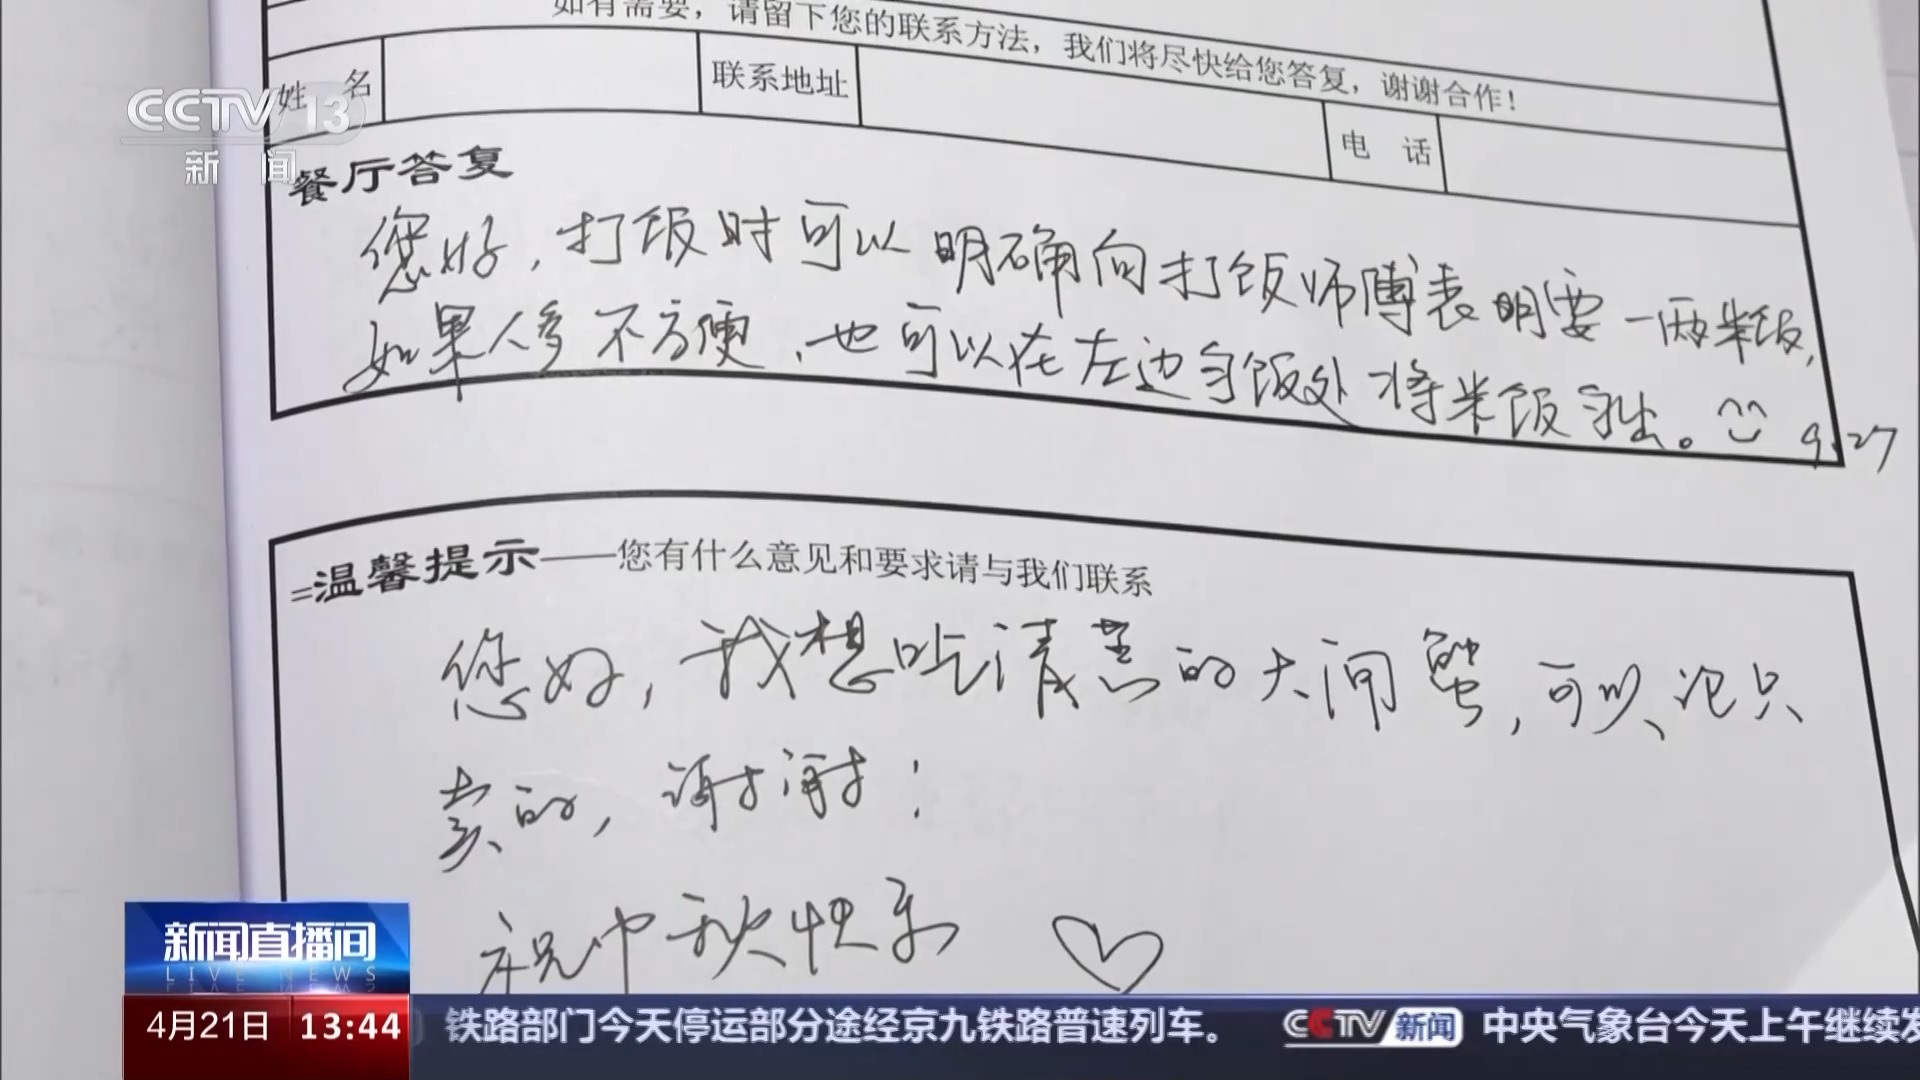 如有需要，请留下您的联系方法，我们将尽快给您答复，谢谢合作！
姓 名
联系地址
电 话
CCTV 13
新闻
餐厅答复
您好，打饭时可以明确向打饭师傅表明要一两米饭，
如果人多不方便，也可以在左边匀饭处将米饭匀出。
9.27
=温馨提示——您有什么意见和要求请与我们联系
您好，我想吃清蒸的大闸蟹，可以论只
卖的，谢谢！
祝中秋快乐
新闻直播间
LIVE NEWS
4月21日 13:44
铁路部门今天停运部分途经京九铁路普速列车。 CCTV 新闻 中央气象台今天上午继续发